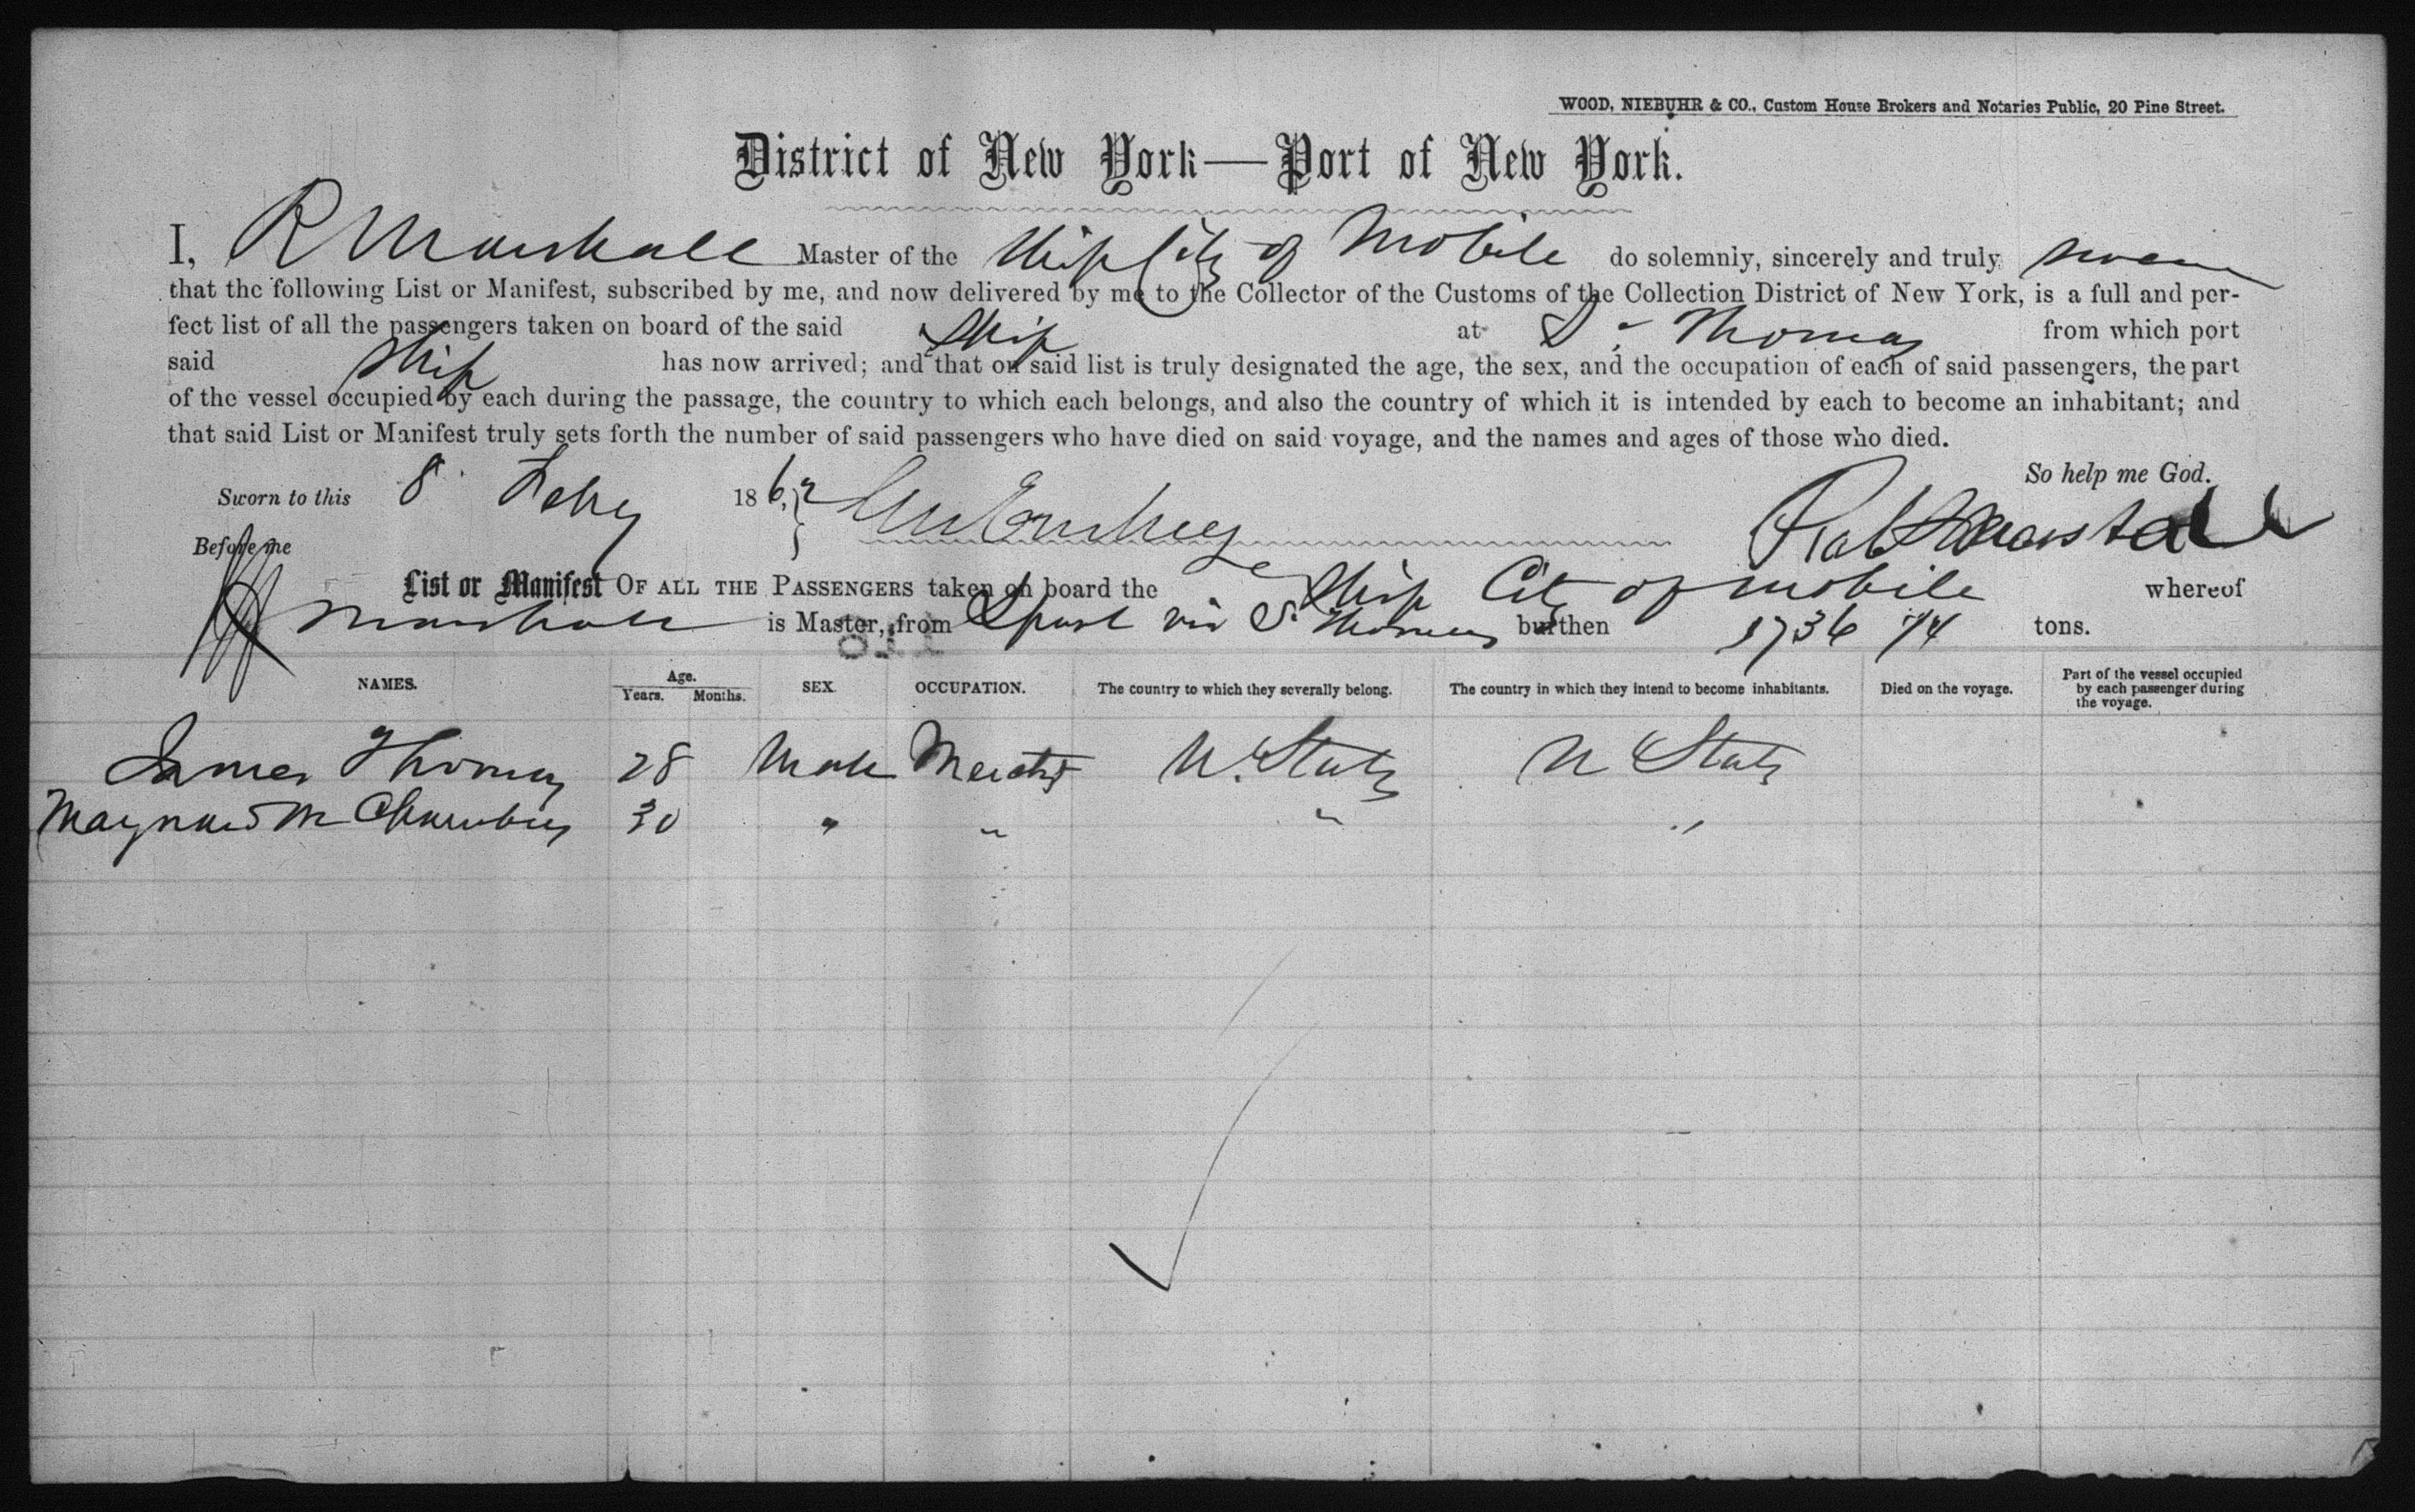 WOOD, NIEBUHR & CO., Custom House Brokers and Notaries Public, 20 Pine Street.
District of New York—Port of New York.
I, R Marshall Master of the Ship City of Mobile do solemnly, sincerely and truly swear
that the following List or Manifest, subscribed by me, and now delivered by me to the Collector of the Customs of the Collection District of New York, is a full and per-
fect list of all the passengers taken on board of the said Ship at St Thomas from which port
said Ship has now arrived; and that on said list is truly designated the age, the sex, and the occupation of each of said passengers, the part
of the vessel occupied by each during the passage, the country to which each belongs, and also the country of which it is intended by each to become an inhabitant; and
that said List or Manifest truly sets forth the number of said passengers who have died on said voyage, and the names and ages of those who died.
So help me God.
Sworn to this 8 Feby 186
Before me
Robt Marshall
List or Manifest OF ALL THE PASSENGERS taken on board the Ship City of Mobile whereof
Marshall is Master, from Lpool via St Thomas burthen 1736 74 tons.
NAMES. Age. Years. Months. SEX. OCCUPATION. The country to which they severally belong. The country in which they intend to become inhabitants. Died on the voyage. Part of the vessel occupied by each passenger during the voyage.
James Thomas 28 Male Mercht U. States U States
Maynard M 30 " " " "